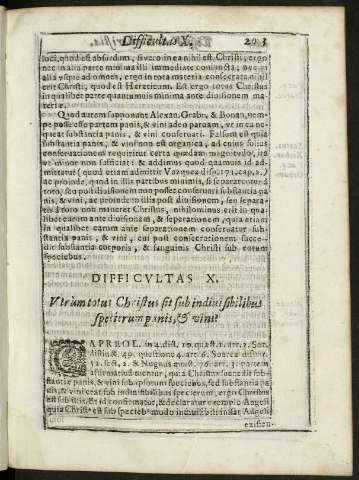 Difficultas X. 203
loci, quod est absurdum, si vero in ea nihil est Christi, ergo
nec in alia parte minima illi immediate coniuncta, nec in
alia vsque ad omnes, ergo in tota materia consecrata nihil
erit Christi, quod est Hereticum. Est ergo totus Christus
in qualibet parte quantumuis minima ante diuisionem ma
teriæ.
Quod autem supponunt Alexan. Grabr. & Bonau. nem-
pe posse esse partem panis, & vini adeo paruam, vt in ea ne-
queat substantia panis, & vini conseruari. Falsum est quia
substantia panis, & vini non est organica, ad cuius solius
conseruationem requiritur certa quædam magnitudo, ita
vt minor non sufficiat: & addimus quod quamuis id ad-
mittatur (quod etiam admittit Vazquez disp. 171. cap. 2.)
ac proinde, quod in illis partibus minimis, si separarentur à
toto, seu post diuisionem non posset conseruari substantia pa
nis, & vini, ac proinde in illis post diuisionem, seu separa-
tis à toto non maneret Christus, nihilominus erit in qua
libet earum ante diuisionem, & seperationem, quia etiam
in qualibet earum ante separationem conseruatur sub-
stantia panis, & vini, cui post consecrationem succe-
dit substantia corporis, & sanguinis Christi sub eorum
speciebus.
DIFFICVLTAS X.
Vtrùm totus Christus sit sub indiuisibilibus
specierum panis, & vini?
CAPREOL. in 4. dist. 10. quæst. 1. art. 2. Sot.
distin. 49. quæstione 4. art. 6. Soarez dispu.
52. sect. 2. & Nugnus quæst. 76. art. 3. partem
affirmatiuam tuentur, quia Christus succedit sub-
stantiæ panis, & vini sub ipsorum speciebus, sed substantia pa
nis, & vini erat sub indiuisibilibus specierum, ergo Christus
est sub illis. Et id confirmatur, & declaratur exemplo Angeli
quia Christus est sub speciebus modo indiuisibili instar Angeli
existen-